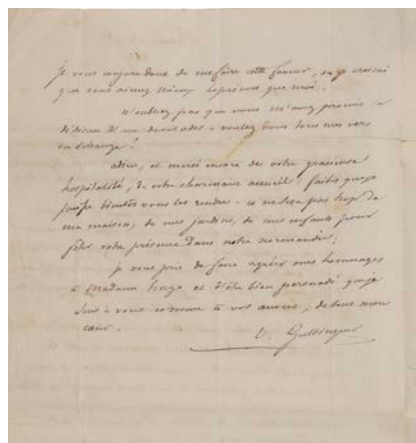 je vous conjure donc de me faire cette faveur, ou je croirai
que vous aimez mieux que moi.
n'oubliez pas que vous m'avez promis la
dédicace d'une de vos odes : voulez vous tous mes vers
en échange ?
adieu, et merci encore de votre gracieuse
hospitalité, de votre charmant accueil ! faites que je
puisse bientôt vous les rendre. ce ne sera pas trop de
ma maison, de mes jardins, de mes enfants pour
fêter votre présence dans notre normandie.
je vous prie de faire agréer mes hommages
à Madame hugo et d'être bien persuadé que je
suis à vous comme à vos œuvres, de tout mon
cœur.
U. Guttinguer